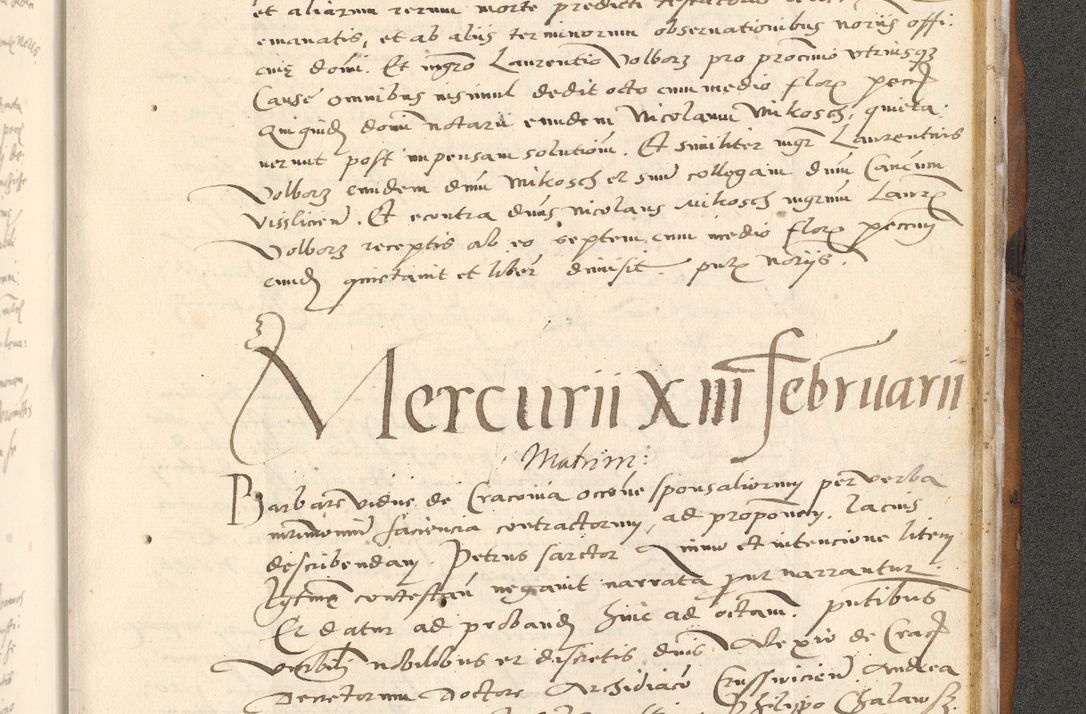 et aliarum rerum morte predicti
emanatis, et ab aliis terminorum observationibus noriis offi:
cii domi. Et mgro Laurentio Volborz pro procinio utriusqz
Cause omnibus insimul dedit octo cum medio flor pecc
quiquid domi notarii eundem Nicolaum Mikosch, quieta
verunt post impensam solutiom. Et similiter mgr Laurentius
Volborz eundem dnm Mikosch et sum collegam dnm Cancum
Visslicien. Et econtra dnus Nicolaus Mikosch mgrum Laurz
Volborz receptis ab eo septem cum medio flor peccuny
eund quietavit et liber dimisit. putz noriis
Mercurii XIII februarii
Matrim:
Barbare vidue de Cracovia occone sponsaliorum per verba
mrimonium faciencia contractorum, ad proponen. lacius
describendam Petrus sartor animo et intencione litem
lytime contestan negavit narrata prout narrantur.
Et datur ad proband hinc ad octam. putibus
Venbilj nobilibus et discretis dnis Alexio de Crac
Decretorum Doctore Archidiaco Crussvicien Andrea
Philippo Chalawsz